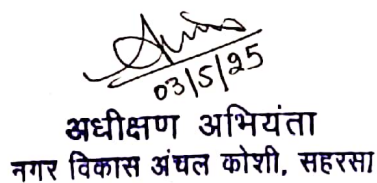 03/5/25
अधीक्षण अभियंता
नगर विकास अंचल कोशी, सहरसा